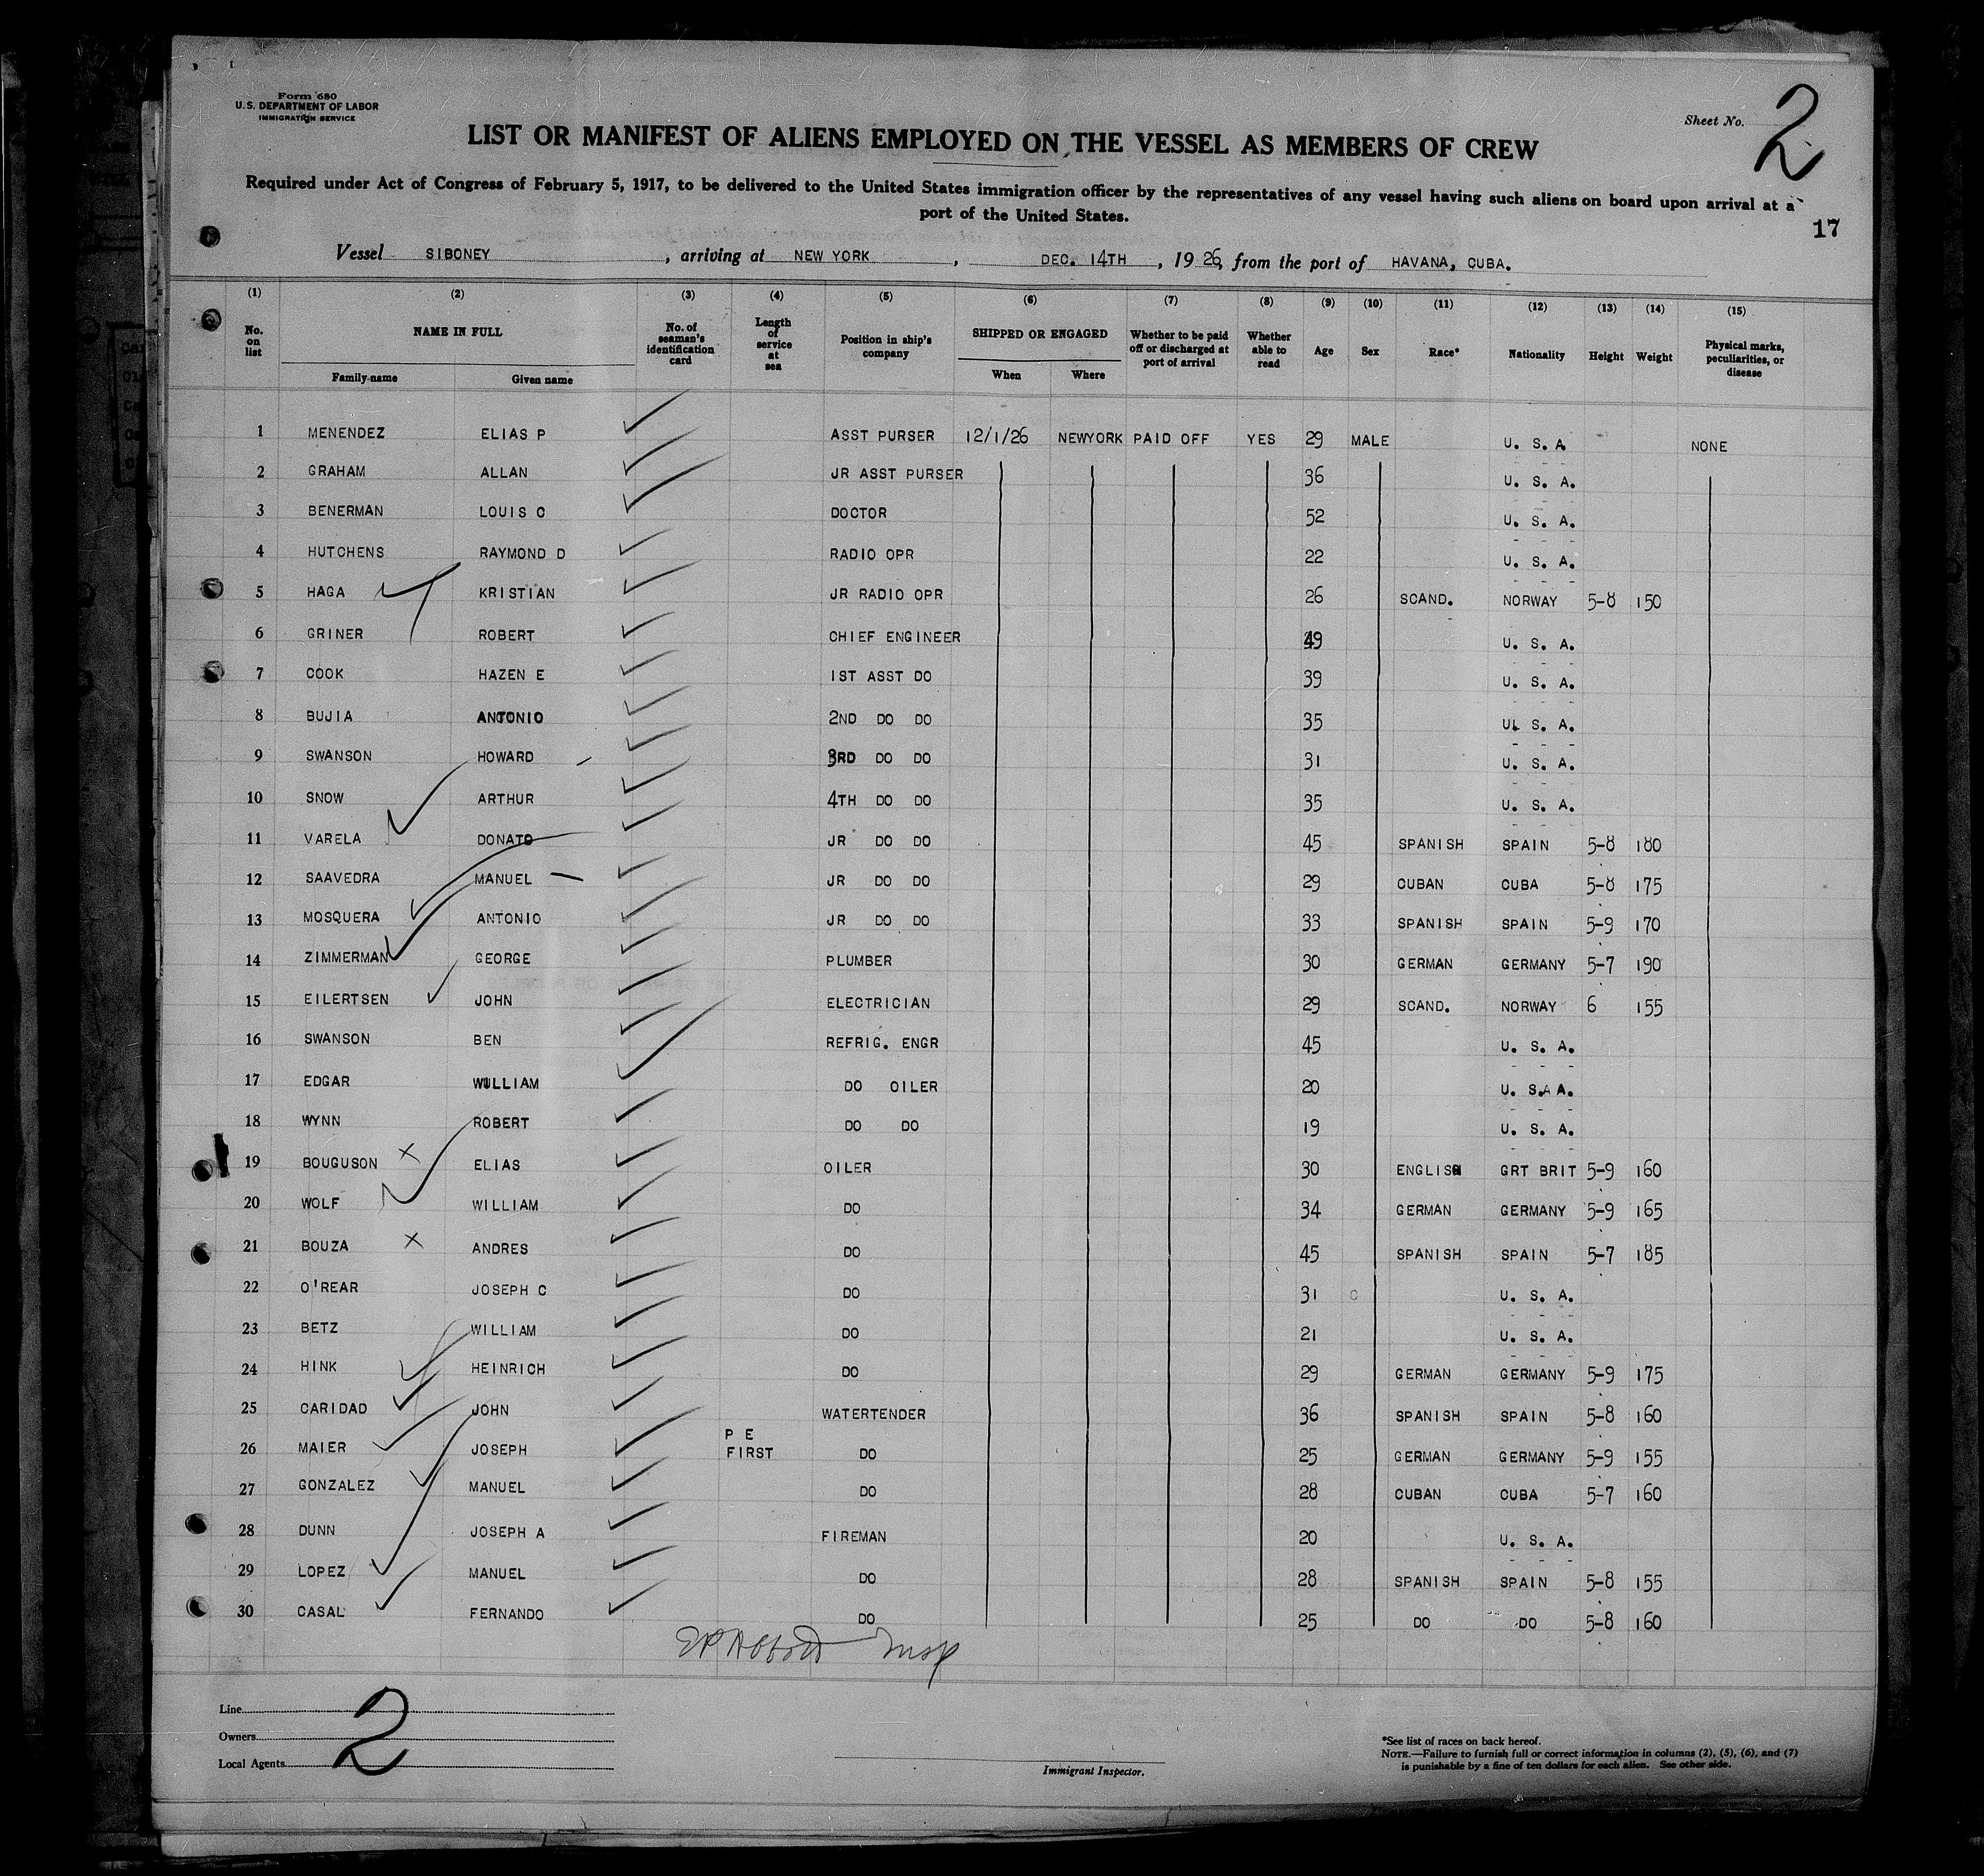 Form 680
U.S. DEPARTMENT OF LABOR
IMMIGRATION SERVICE
Sheet No. 2
LIST OR MANIFEST OF ALIENS EMPLOYED ON THE VESSEL AS MEMBERS OF CREW
Required under Act of Congress of February 5, 1917, to be delivered to the United States immigration officer by the representatives of any vessel having such aliens on board upon arrival at a
port of the United States.
17
Vessel SIBONEY, arriving at NEW YORK, DEC. 14TH, 19 26, from the port of HAVANA, CUBA.
(1) (2) (3) (4) (5) (6) (7) (8) (9) (10) (11) (12) (13) (14) (15)
No. on list NAME IN FULL No. of seaman's identification card Length of service at sea Position in ship's company SHIPPED OR ENGAGED Whether to be paid off or discharged at port of arrival Whether able to read Age Sex Race* Nationality Height Weight Physical marks, peculiarities, or disease
Family name Given name When Where
1 MENENDEZ ELIAS P ASST PURSER 12/1/26 NEWYORK PAID OFF YES 29 MALE U. S. A NONE
2 GRAHAM ALLAN JR ASST PURSER 36 U. S. A.
3 BENERMAN LOUIS C DOCTOR 52 U. S. A.
4 HUTCHENS RAYMOND D RADIO OPR 22 U. S. A.
5 HAGA KRISTIAN JR RADIO OPR 26 SCAND. NORWAY 5-8 150
6 GRINER ROBERT CHIEF ENGINEER 49 U. S. A.
7 COOK HAZEN E 1ST ASST DO 39 U. S. A.
8 BUJIA ANTONIO 2ND DO DO 35 U. S. A.
9 SWANSON HOWARD 3RD DO DO 31 U. S. A.
10 SNOW ARTHUR 4TH DO DO 35 U. S. A.
11 VARELA DONATO JR DO DO 45 SPANISH SPAIN 5-8 180
12 SAAVEDRA MANUEL JR DO DO 29 CUBAN CUBA 5-8 175
13 MOSQUERA ANTONIO JR DO DO 33 SPANISH SPAIN 5-9 170
14 ZIMMERMAN GEORGE PLUMBER 30 GERMAN GERMANY 5-7 190
15 EILERTSEN JOHN ELECTRICIAN 29 SCAND. NORWAY 6 155
16 SWANSON BEN REFRIG. ENGR 45 U. S. A.
17 EDGAR WILLIAM DO OILER 20 U. S.A A.
18 WYNN ROBERT DO DO 19 U. S. A.
19 BOUGUSON X ELIAS OILER 30 ENGLISH GRT BRIT 5-9 160
20 WOLF WILLIAM DO 34 GERMAN GERMANY 5-9 165
21 BOUZA X ANDRES DO 45 SPANISH SPAIN 5-7 185
22 O'REAR JOSEPH C DO 31 C U. S. A.
23 BETZ WILLIAM DO 21 U. S. A.
24 HINK HEINRICH DO 29 GERMAN GERMANY 5-9 175
25 CARIDAD JOHN WATERTENDER 36 SPANISH SPAIN 5-8 160
26 MAIER JOSEPH P E FIRST DO 25 GERMAN GERMANY 5-9 155
27 GONZALEZ MANUEL DO 28 CUBAN CUBA 5-7 160
28 DUNN JOSEPH A FIREMAN 20 U. S. A.
29 LOPEZ MANUEL DO 28 SPANISH SPAIN 5-8 155
30 CASAL FERNANDO DO 25 DO DO 5-8 160
Insp
Line
Owners
Local Agents
2
Immigrant Inspector.
*See list of races on back hereof.
NOTE.—Failure to furnish full or correct information in columns (2), (5), (6), and (7)
is punishable by a fine of ten dollars for each alien. See other side.